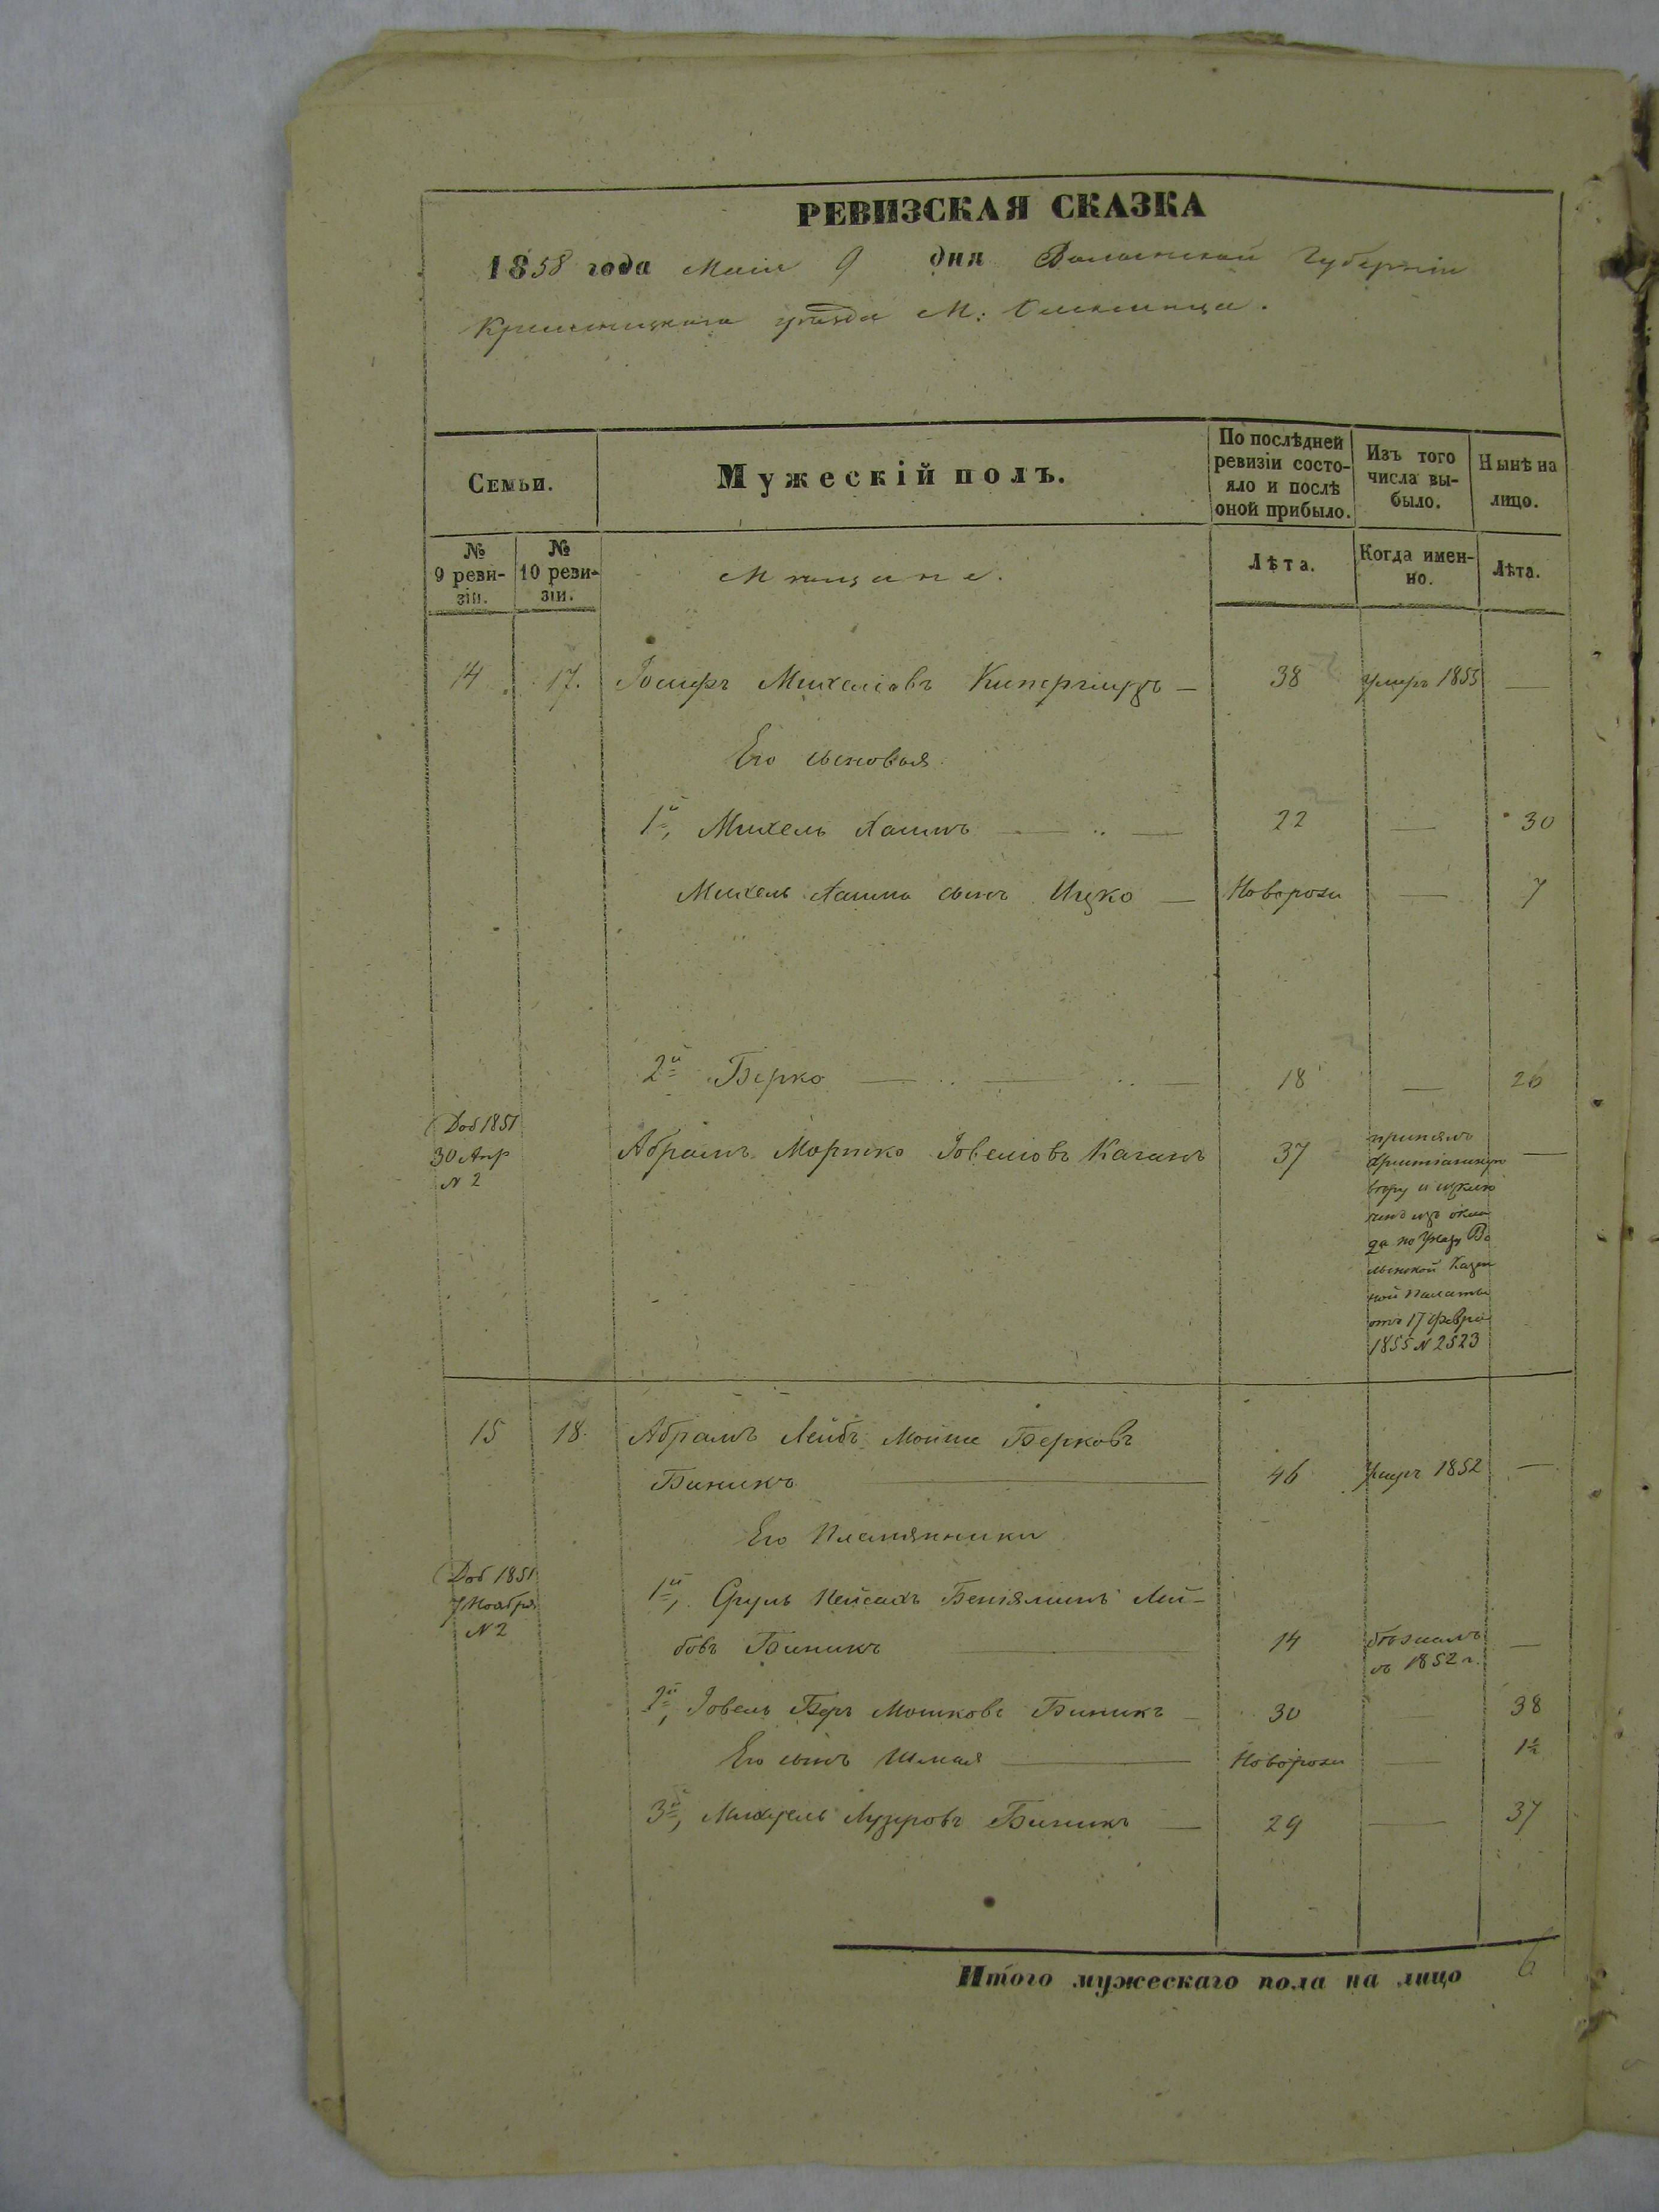 РЕВИЗСКАЯ СКАЗКА
1858 года Маія 9 дня Волынской Губерніи
Кременецкаго уѣзда М:
Семьи.
Мужескій полъ.
По послѣдней ревизіи состояло и послѣ оной прибыло.
Изъ того числа выбыло.
Нынѣ на лицо.
№ 9 ревизіи.
№ 10 ревизіи.
Мѣщане.
Лѣта.
Когда именно.
Лѣта.
14 17. Іосифъ Михеліовъ — 38 умеръ 1855 —
Его сыновья
1й, Михель Хаимъ — .. — 22 — 30
Михель Хаима сынъ Ицко — Новорожд — 7
2й Берко — .. — .. — 18 — 26
Доб 1851
30 Апр
N 2
Абрамъ Мортко Іовеліовъ Каганъ 37 —
принялъ
християнскую
вѣру и исклю
ченъ изъ окла
да по Указу Во
лынской Казен
ной Палаты
отъ 17 Февра
1855 N 2523
15 18. Абрамъ Лейбъ Мойше Берковъ
Биникъ — 46 умеръ 1852 —
Его Племянники
Доб 1851
7 Ноября
N 2
1й, Сруль Пейсахъ Бенямин Лей-
бовъ Биникъ — 14 бѣжалъ —
въ 1852 г.
2й, Іовель Беръ Мошковъ Биникъ — 30 — 38
Его сынъ Шмая — Новорожд — 1½
3й, Лузеровъ Биникъ — 29 — 37
Итого мужескаго пола на лицо 6